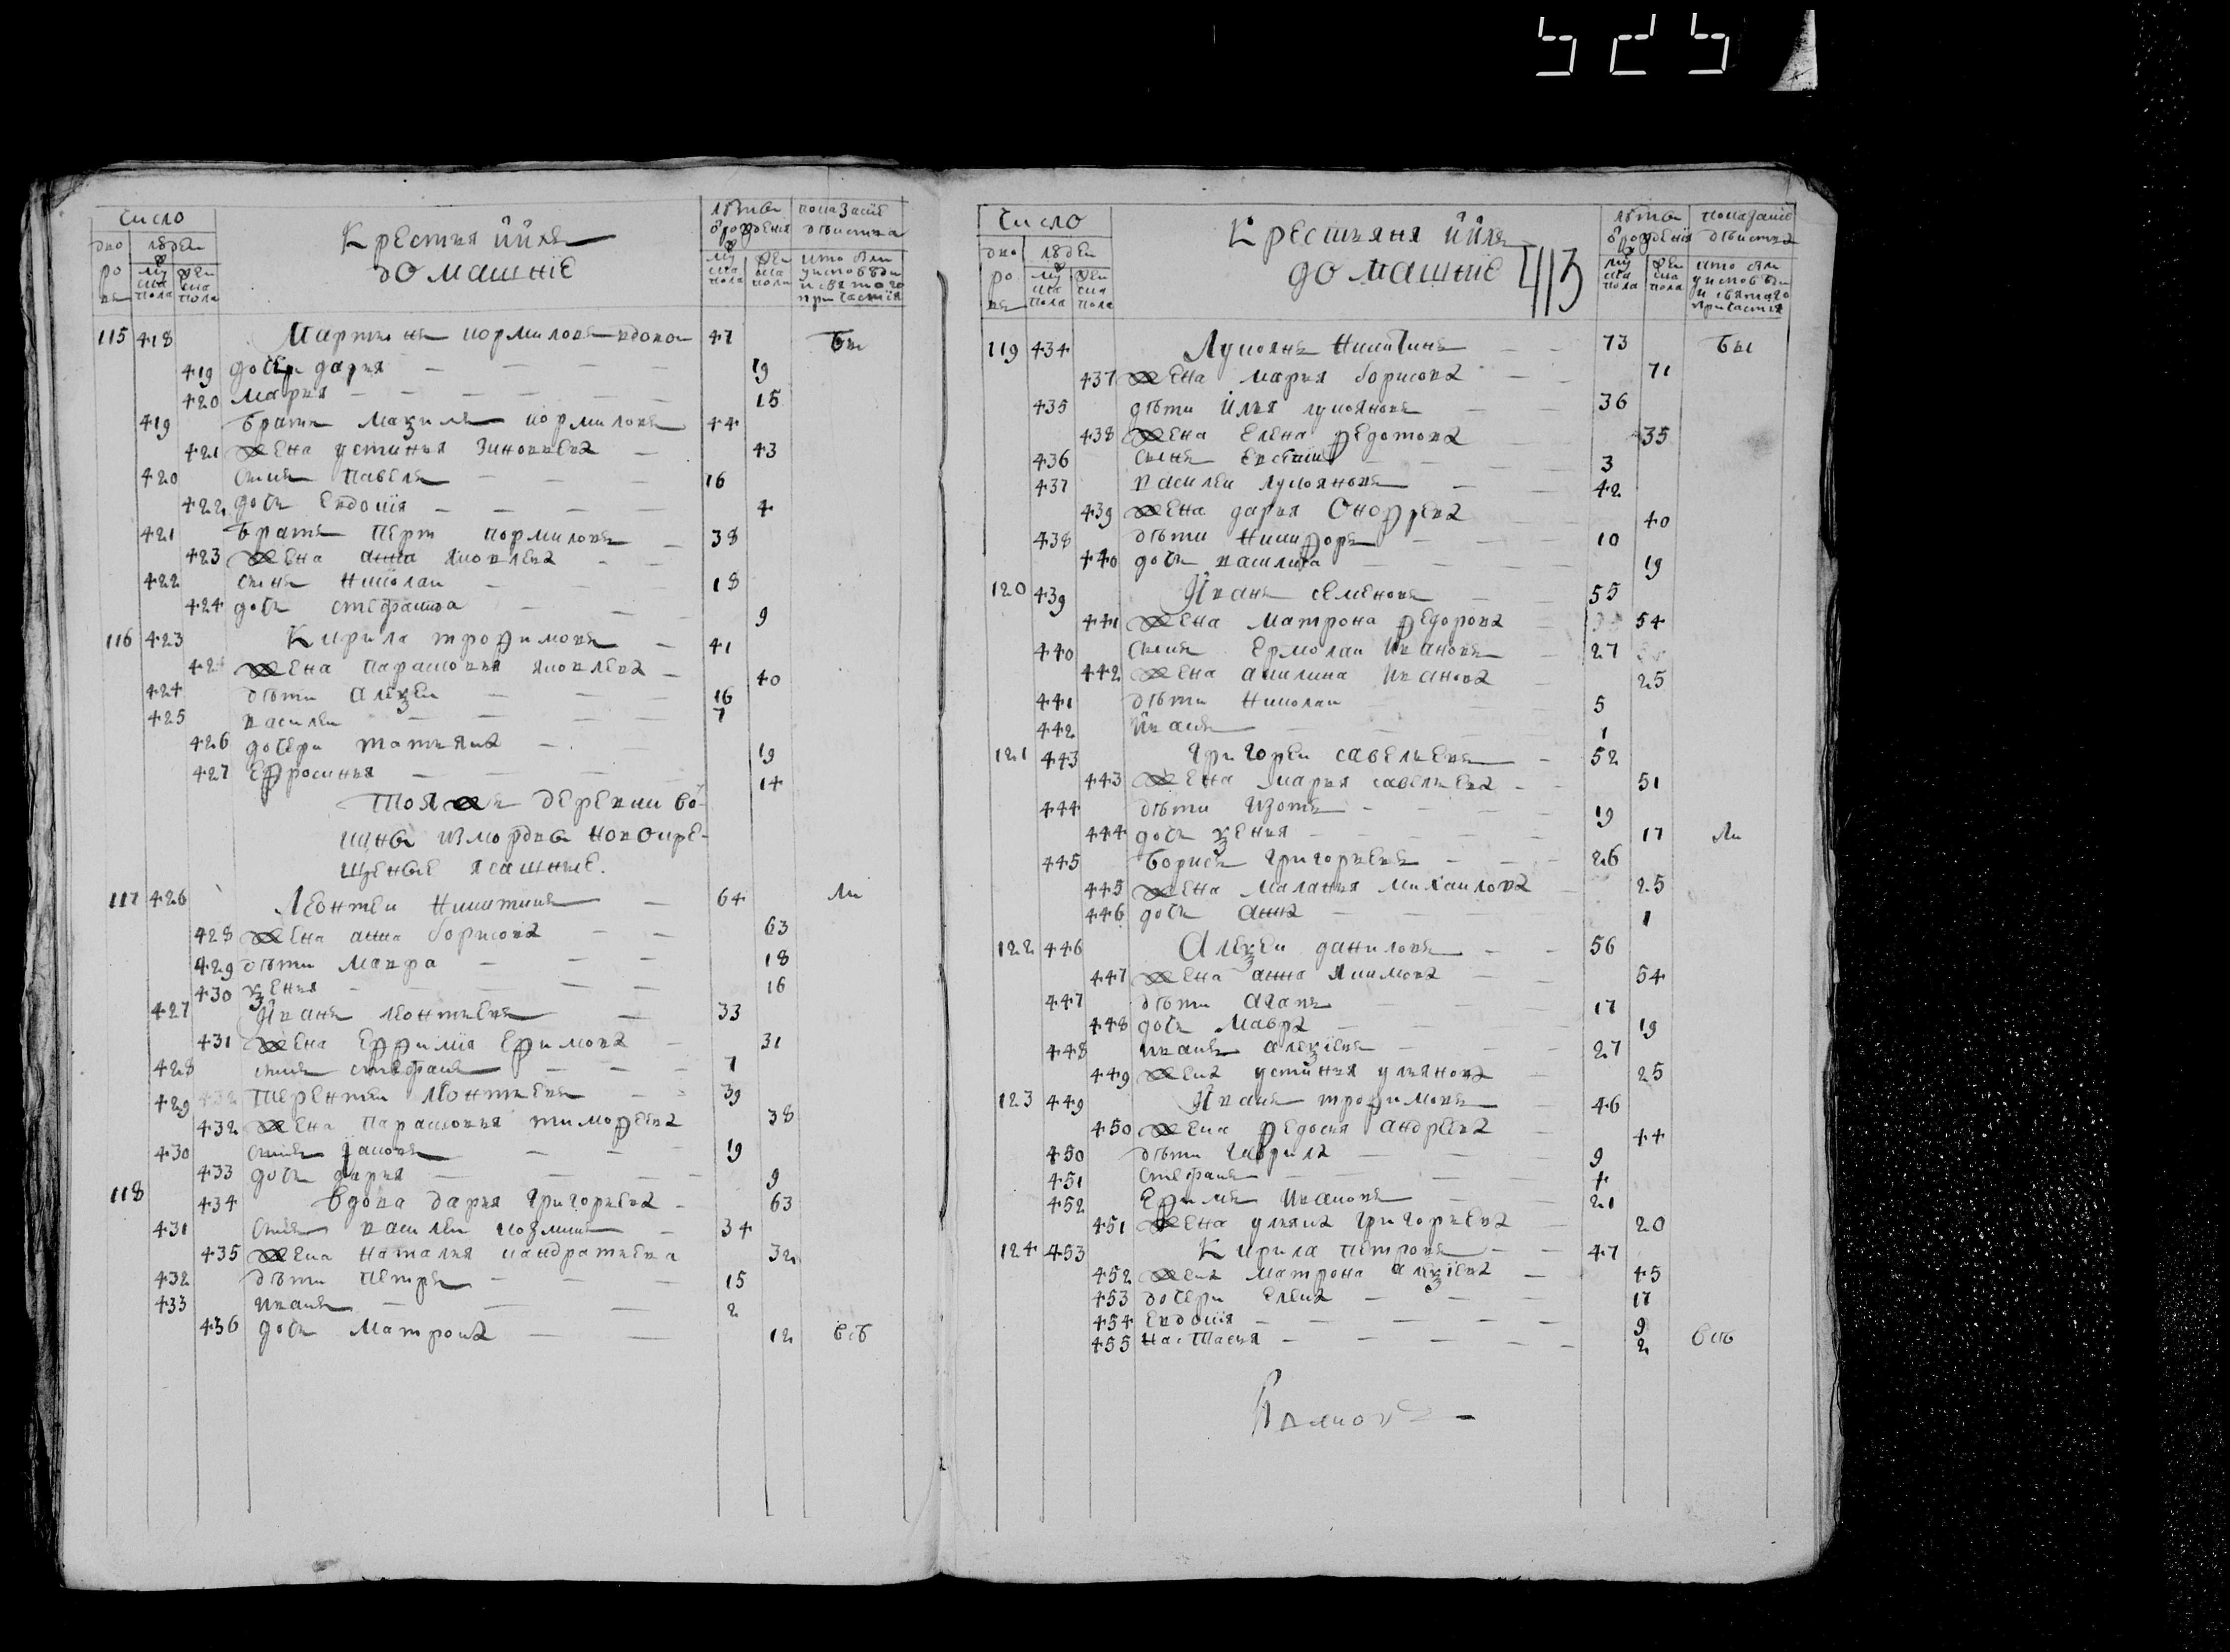 525
Число
дво ро въ
людеи
му ска пола
жен ска пола
Крестьяня ййхъ
домашніе
лѣтъ ѿ рожденія
му ска пола
жен ска пола
показаніе дѣиства
кто былъ у исповѣди и святаго причастія
115 418 Мартынъ кормиловъ вдовъ 47 бы
419 дочери дарья — 19
420 марья — 15
419 братъ мазилъ кормиловъ 44
421 жена устинья зиновьева — 43
420 сынъ павелъ — 16
422 дочь евдокія — 4
421 братъ петръ кормиловъ — 38
423 жена анна яковлева —
422 сынъ николаи — 18
424 дочь стефанида — 9
116 423 Кирила трофимовъ — 41
42 жена парасковья яковлева — 40
424 дѣти алеѯеи — 16
425 василеи — 7
426 дочери татьяна — 19
427 ефросинья — 14
тоя жъ деревни во-
щины измордвы новокре-
щеные ясашные.
117 426 Леонтеи никитинъ — 64 ли
428 жена анна борисова — 63
429 дѣти мавра — 18
430 ѯенья — 16
427 Иванъ леонтьевъ — 33
431 жена ефимія ефимова — 31
428 сынъ стефанъ — 1
429 432 терентеи леонтьевъ — 39
432 жена парасковья тимофеева 38
430 сынъ яковъ — 19
433 дочь дарья — 9
118 434 вдова дарья григорьева — 63
431 сынъ василеи козминъ — 34
435 жена наталья кандратьева 32
432 дѣти петръ — 15
433 иванъ — 2
436 дочь матрона — 12 всѣ
Число
дво ро въ
людеи
му ска пола
жен ска пола
Крестьяня ййхъ
домашніе
413
лѣтъ ѿ рожденія
му ска пола
жен ска пола
показаніе дѣиства
кто былъ у исповѣди и святаго причастія
119 434 Лукоянъ никитинъ — 73 бы
437 жена марья борисова — 71
435 дѣти илья лукояновъ — 36
438 жена елена федотова 35
436 сынъ — 3
437 василеи лукояновъ — 42
439 жена дарья онофрева 40
438 дѣти никифоръ — 10
440 дочь василиса — 19
120 439 Иванъ семеновъ — 55
441 жена матрона федорова — 54
440 сынъ ермолаи ивановъ — 27
442 жена акилина иванова — 25
441 дѣти николаи — 5
442 иванъ — 1
121 443 григореи савельевъ — 52
443 жена марья савельева — 51
444 дѣти изотъ — 19
444 дочь ѯенья — 17 ли
445 борисъ григорьевъ — 26
445 жена маланья михаилова 25
446 дочь анна — 1
122 446 Алеѯеи даниловъ — 56
447 жена анна якимова — 54
447 дѣти агапъ — 17
448 дочь мавра — 19
448 иванъ алеѯіевъ — 27
449 жена устинья ульянова — 25
123 449 Иванъ трофимовъ — 46
450 жена федосья андреева — 44
450 дѣти гаврила — 9
451 стефанъ — 4
452 ефимъ ивановъ — 21
451 жена ульяна григорьева — 20
124 453 Кирила петровъ — 47
452 жена матрона алеѯіева — 45
453 дочери елена — 17
454 евдокія — 9
455 настасья — 2 всѣ